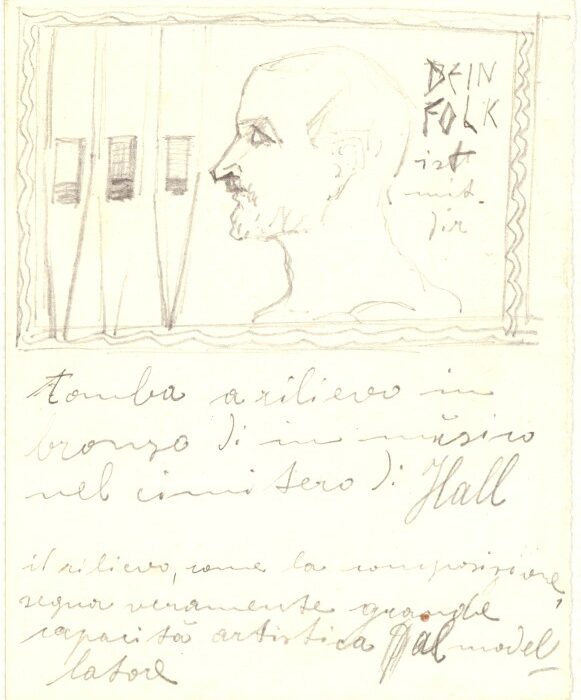 DEIN
FOLK
ist
mit
dir
tomba a rilievo in
bronzo di un musico
nel cimitero di Hall
il rilievo, come la composizione,
segna veramente grande
capacità artistica dal model
latore